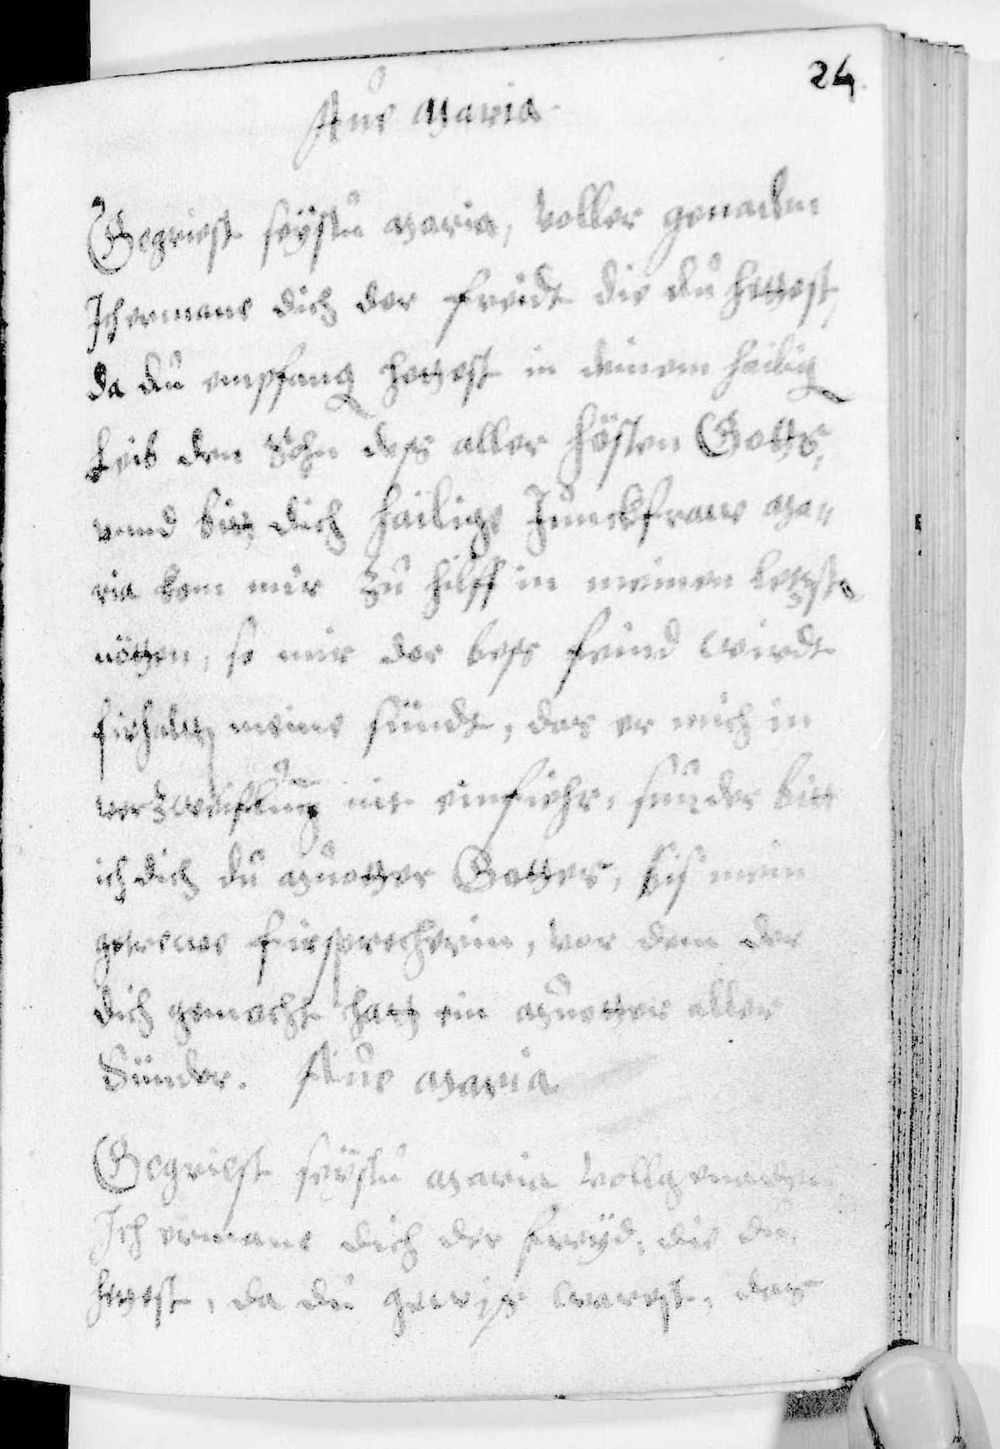 24.
Aue Maria.
Gegriest seÿstu Maria, voller genaden
Ich ermane dich der freidt die du hettest,
da du empfang hettest in deinem hailig
Leib den Sohn deß aller hösten Gotts,
vnnd bitt dich hailige Junckfraw Ma=
ria kom mir zu hilff in meinen letzste
nötten, so mir der böß feind wirdt
firhaltt meine sündt, das er mich in
verzweiflung nit einfiehr, sunder bitt
ich dich du Muotter Gottes, bis mein
getrewe firsprecherin, vor dem der
dich gemacht hatt ein Muotter aller
Sünder. Aue Maria
Gegriest seÿstu Maria voll genaden
Ich ermane dich der freÿd, die du
hettest, da du gewiß warest, das